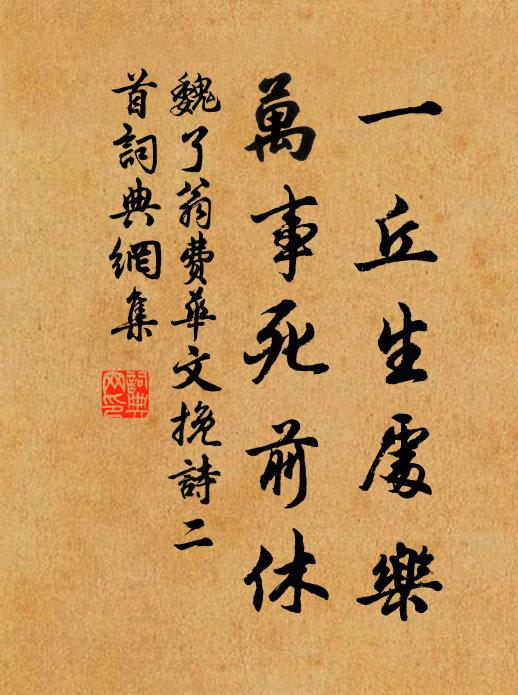 一丘生處樂
萬事死前休
魏了翁費華文挽詩二
首詞典網集
詞典網印